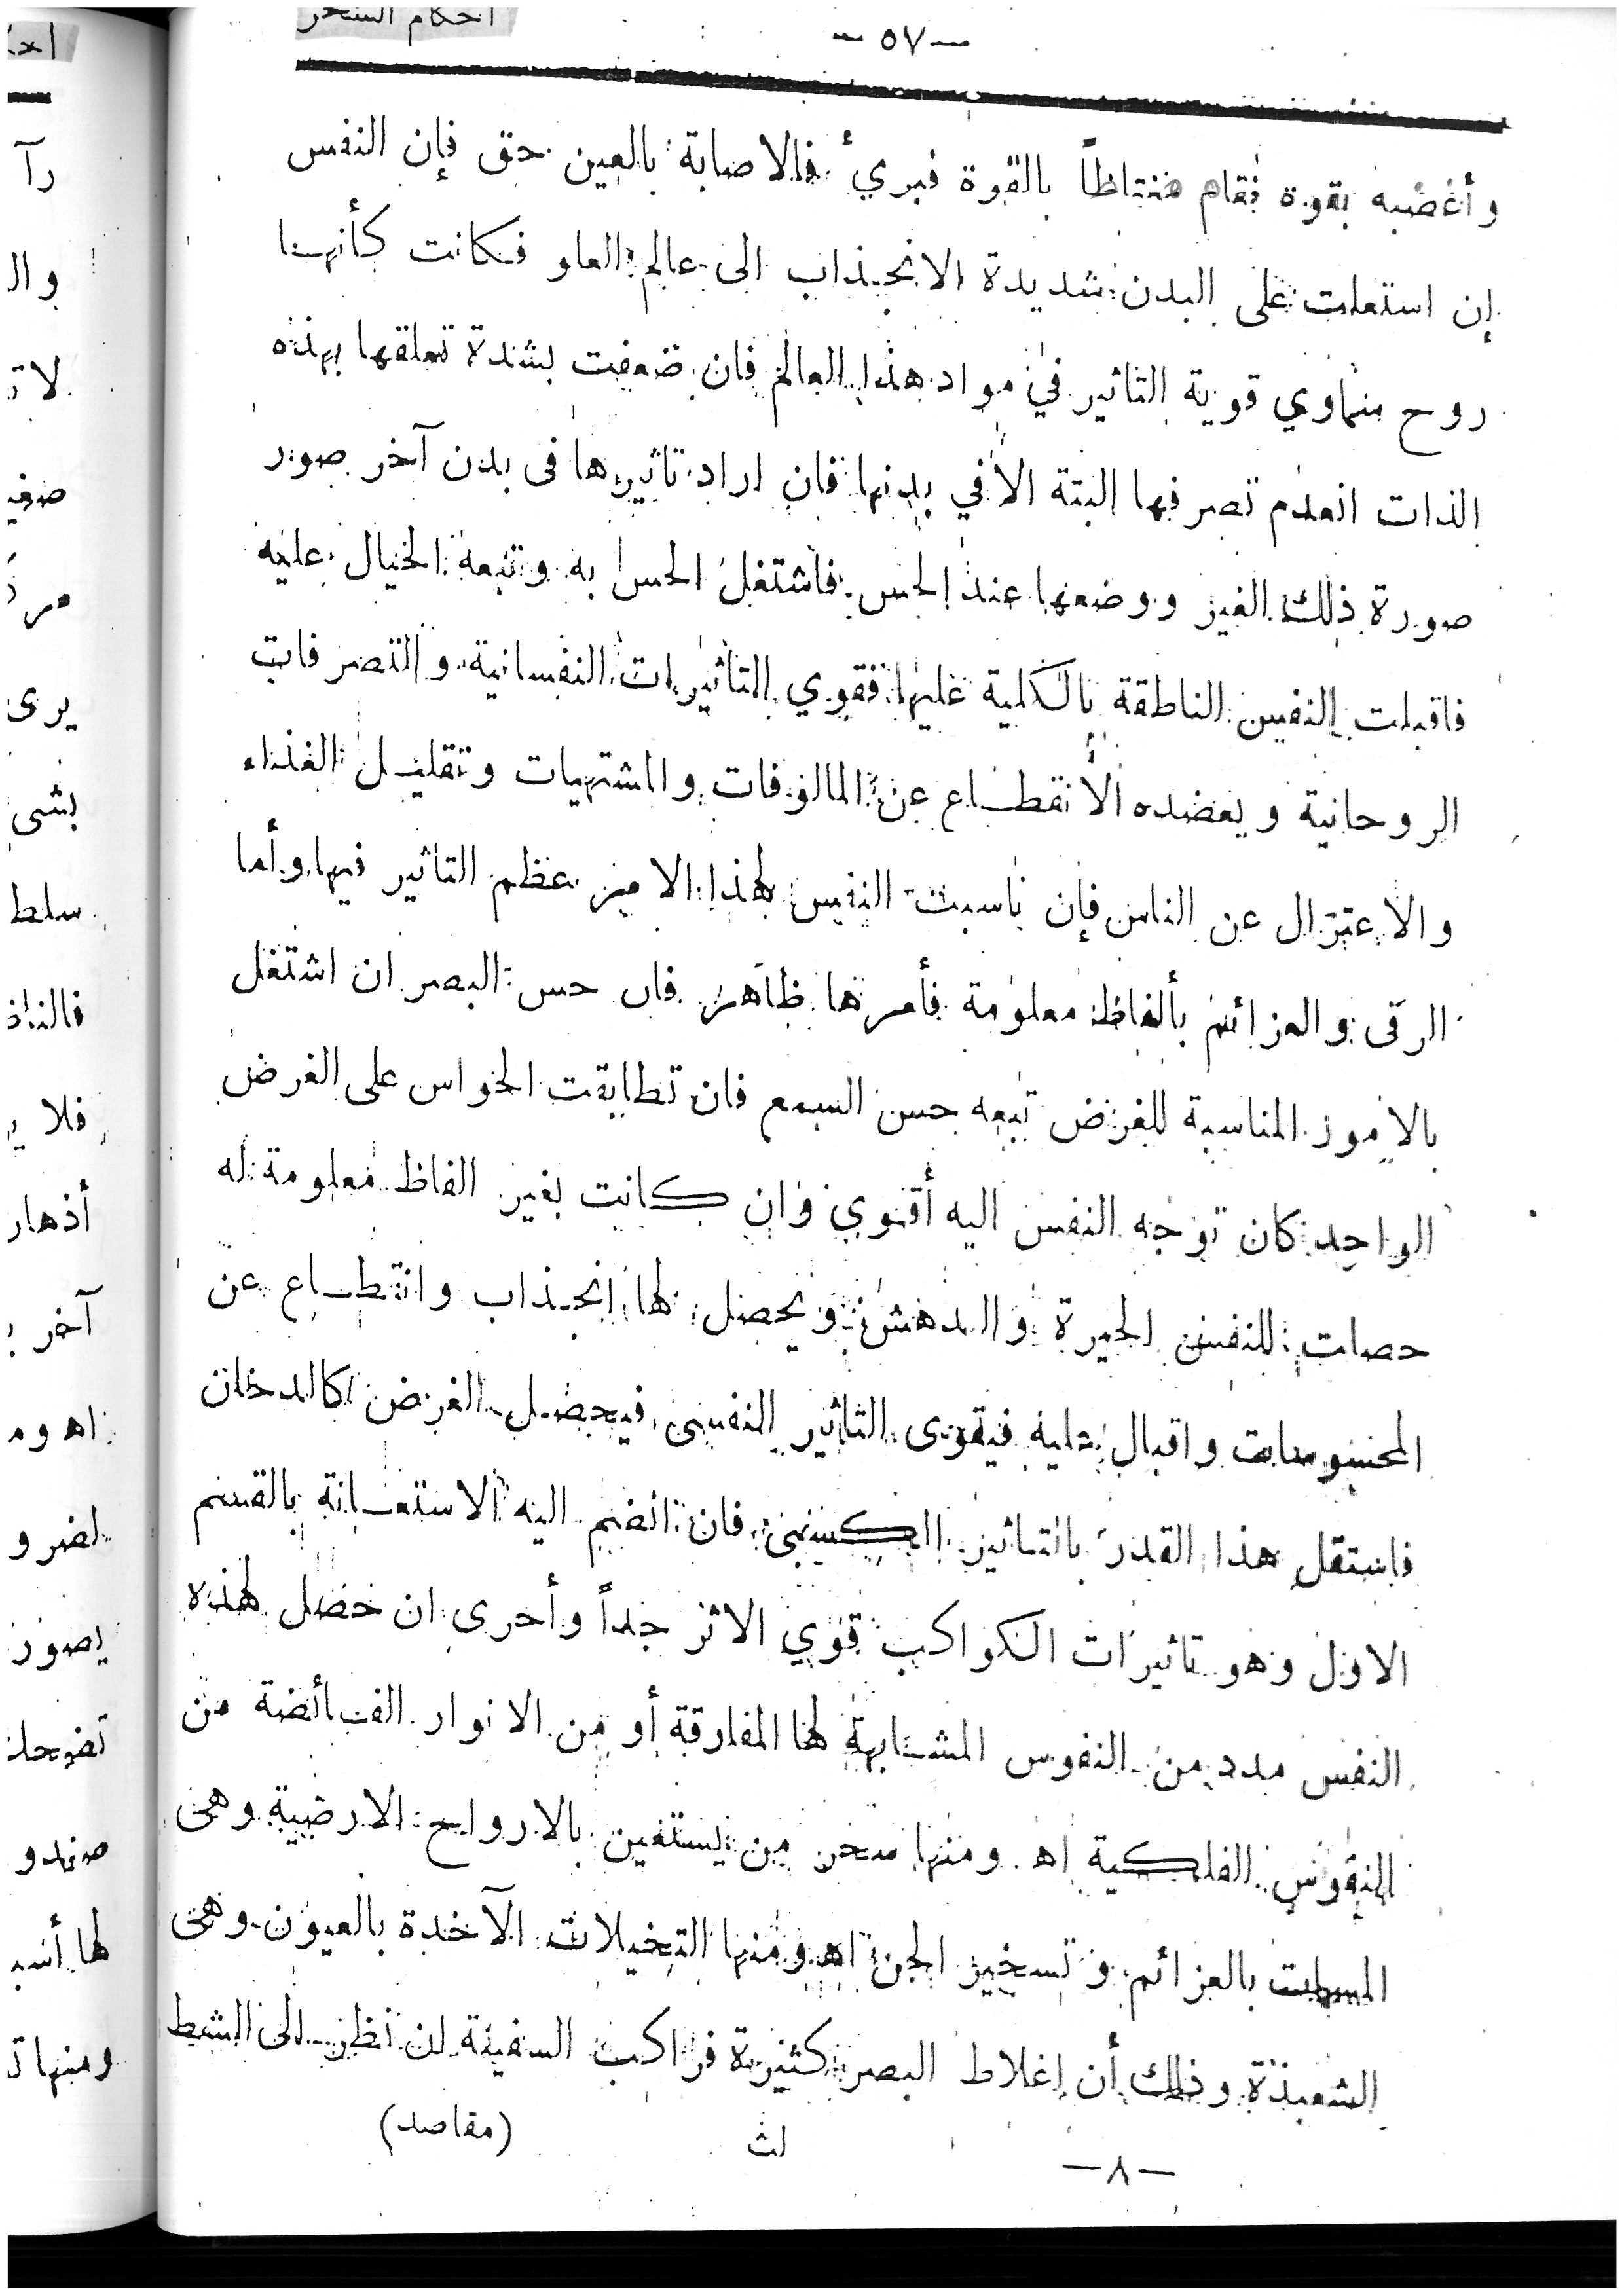 احكام السحر
— ٥٧ —
وأغضبه بقوة فقام مغتاظاً بالقوة فبريء فالاصابة بالعين حق فإن النفس
إن استعلت على البدن شديدة الانجذاب الى عالم العلو فكانت كأنها
روح سماوي قوية التاثير في مواد هذا العالم فان ضعفت بشدة تعلقها بهذه
الذات انعدم تصرفها البتة الا في بدنها فان اراد تاثيرها فى بدن آخر صور
صورة ذلك الغير ووضعها عند الحس فاشتغل الحس به وتبعه الخيال عليه
فاقبلت النفس الناطقة بالكلية عليها فقوي التاثيرات النفسانية والتصرفات
الروحانية ويعضده الأنقطاع عن المالوفات والمشتهيات وتقليل الغذاء
والاعتزال عن الناس فإن ناسبت النفس لهذا الامر عظم التاثير فيها وأما
الرقى والعزائم بألفاظ معلومة فأمرها ظاهر فان حس البصر ان اشتغل
بالامور المناسبة للغرض تبعه حس السمع فان تطابقت الحواس على الغرض
الواحد كان توجه النفس اليه أقوي وان كانت بغير الفاظ معلومة له
حصلت للنفس الحيرة والدهش ويحصل لها انجذاب وانقطاع عن
المحسوسات واقبال عليه فيقوى التاثير النفسى فيحصل الغرض كالدخان
فاستقل هذا القدر بالتاثير فان انضم اليه الاستعانة بالقسم
الاول وهو تاثيرات الكواكب قوي الاثر جداً وأحرى ان حصل لهذه
النفس مدد من النفوس المشابهة لها المفارقة أو من الانوار الفائضة من
النفوس الفلكية اه ومنها سحر من يستعين بالارواح الارضية وهى
المسمات بالعزائم وتسخير الجن اه ومنها التخيلات الآخذة بالعيون وهى
الشعبذة وذلك أن اغلاط البصر كثيرة فراكب السفينة ان نظر الى الشط
(مقاصد)
لث
— ٨ —